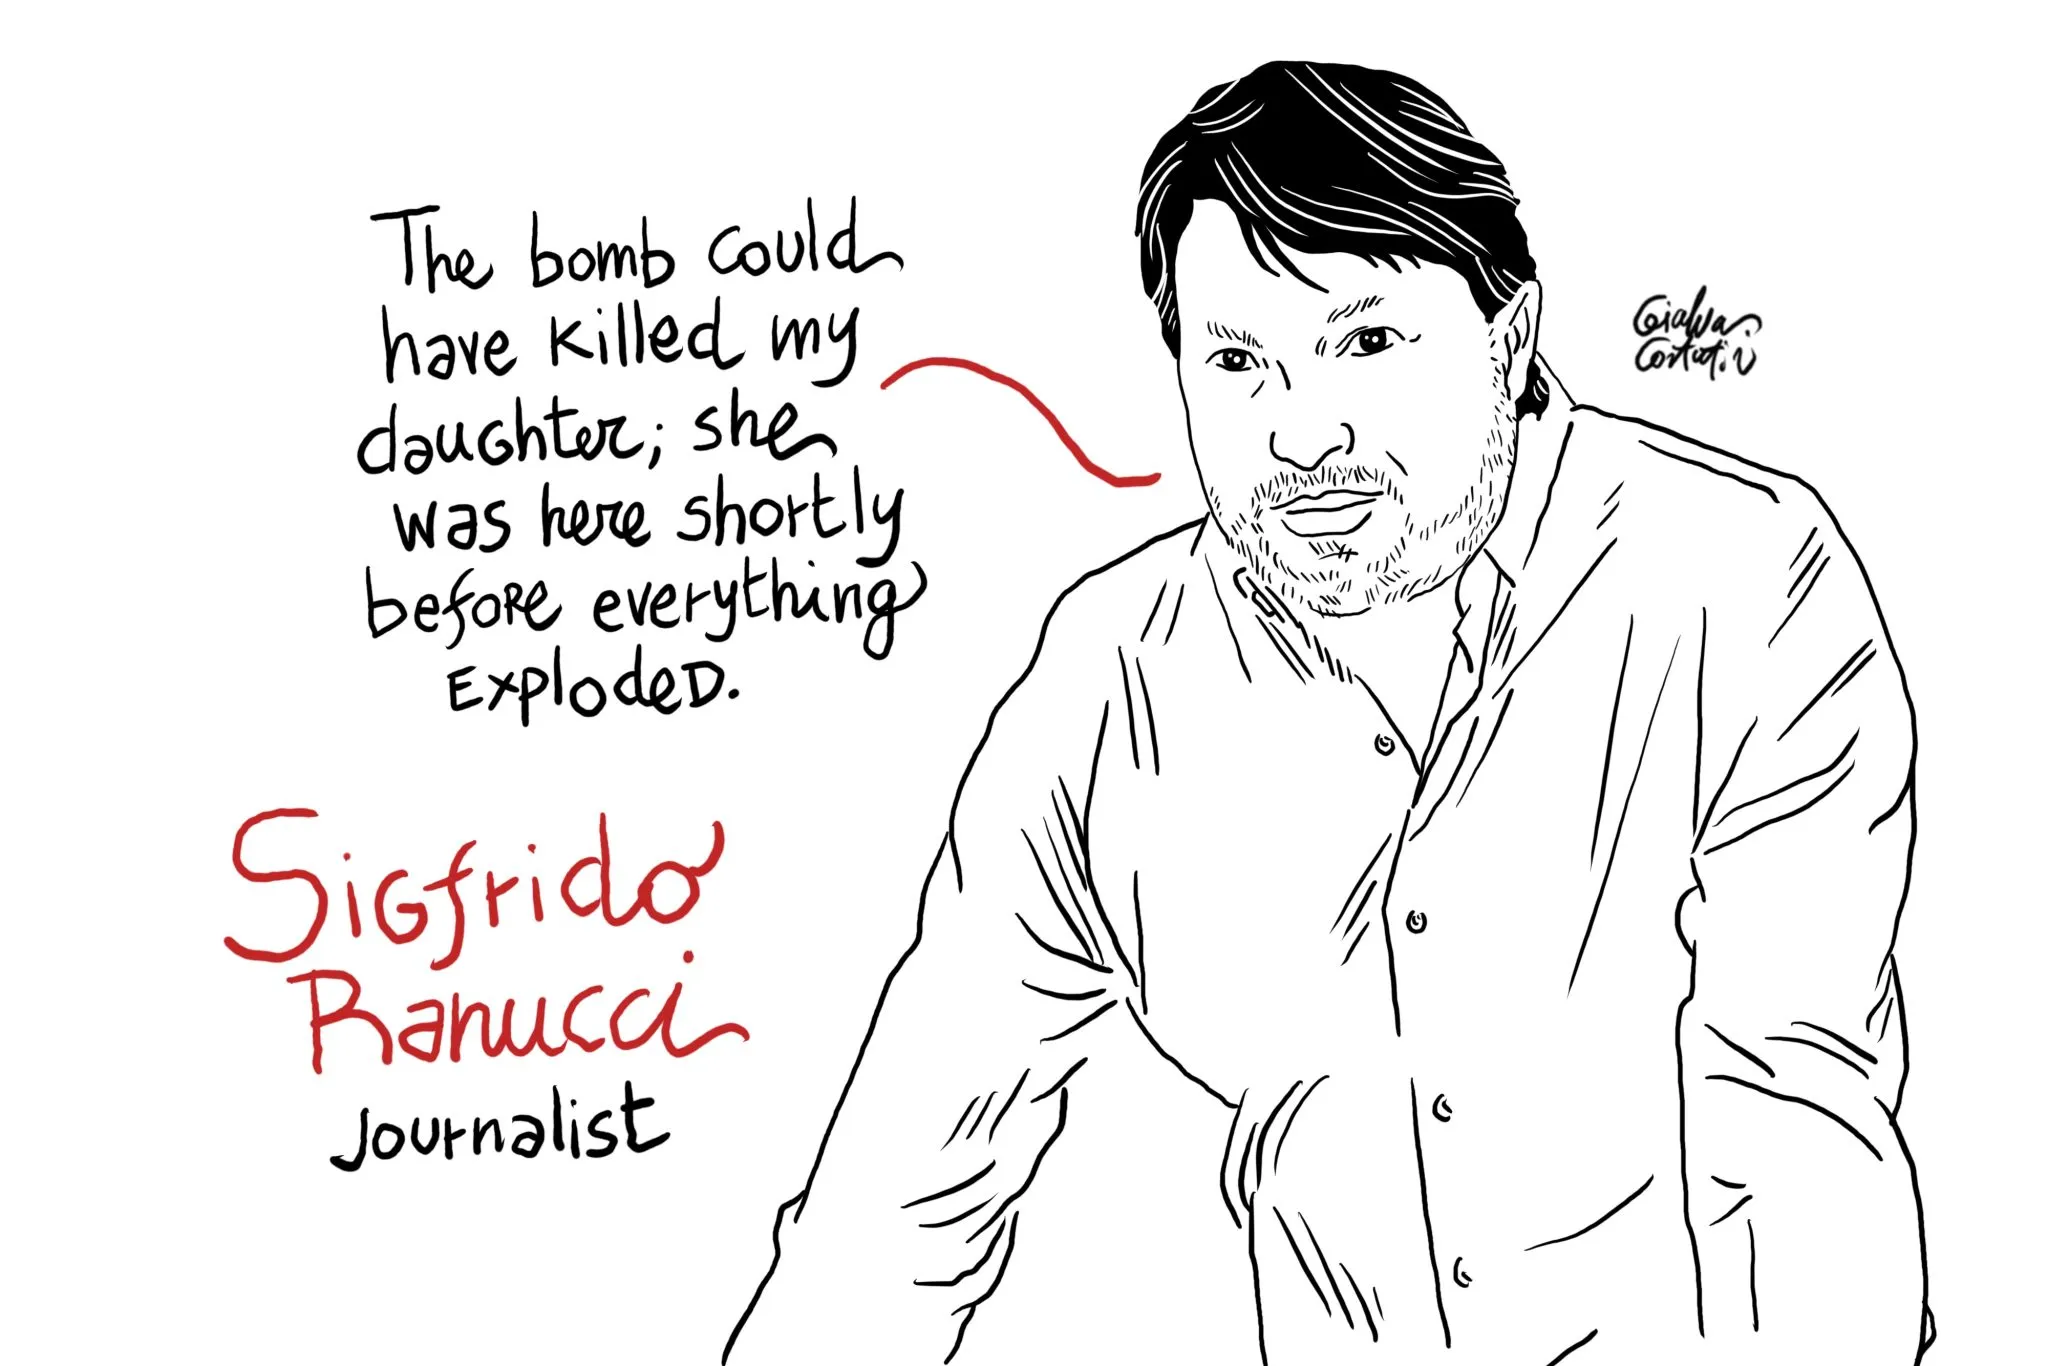 The bomb could
have killed my
daughter; she
was here shortly
before everything
exploded.
Sigfrido
Ranucci
Journalist